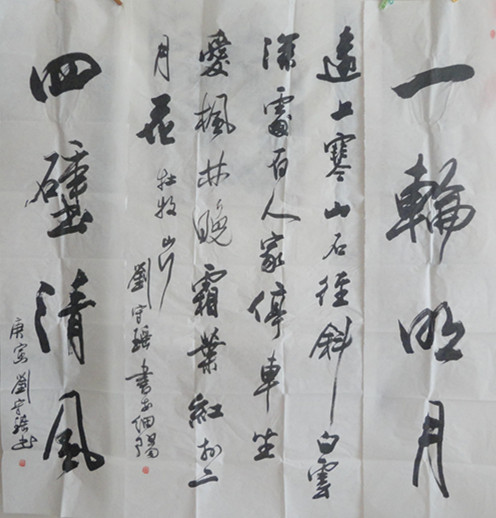 一輪明月
遠上寒山石徑斜白雲
深處有人家停車坐
愛楓林晚霜葉紅於二
月花 杜牧山行
劉守書於細陽
四壁清風
庚寅劉守書